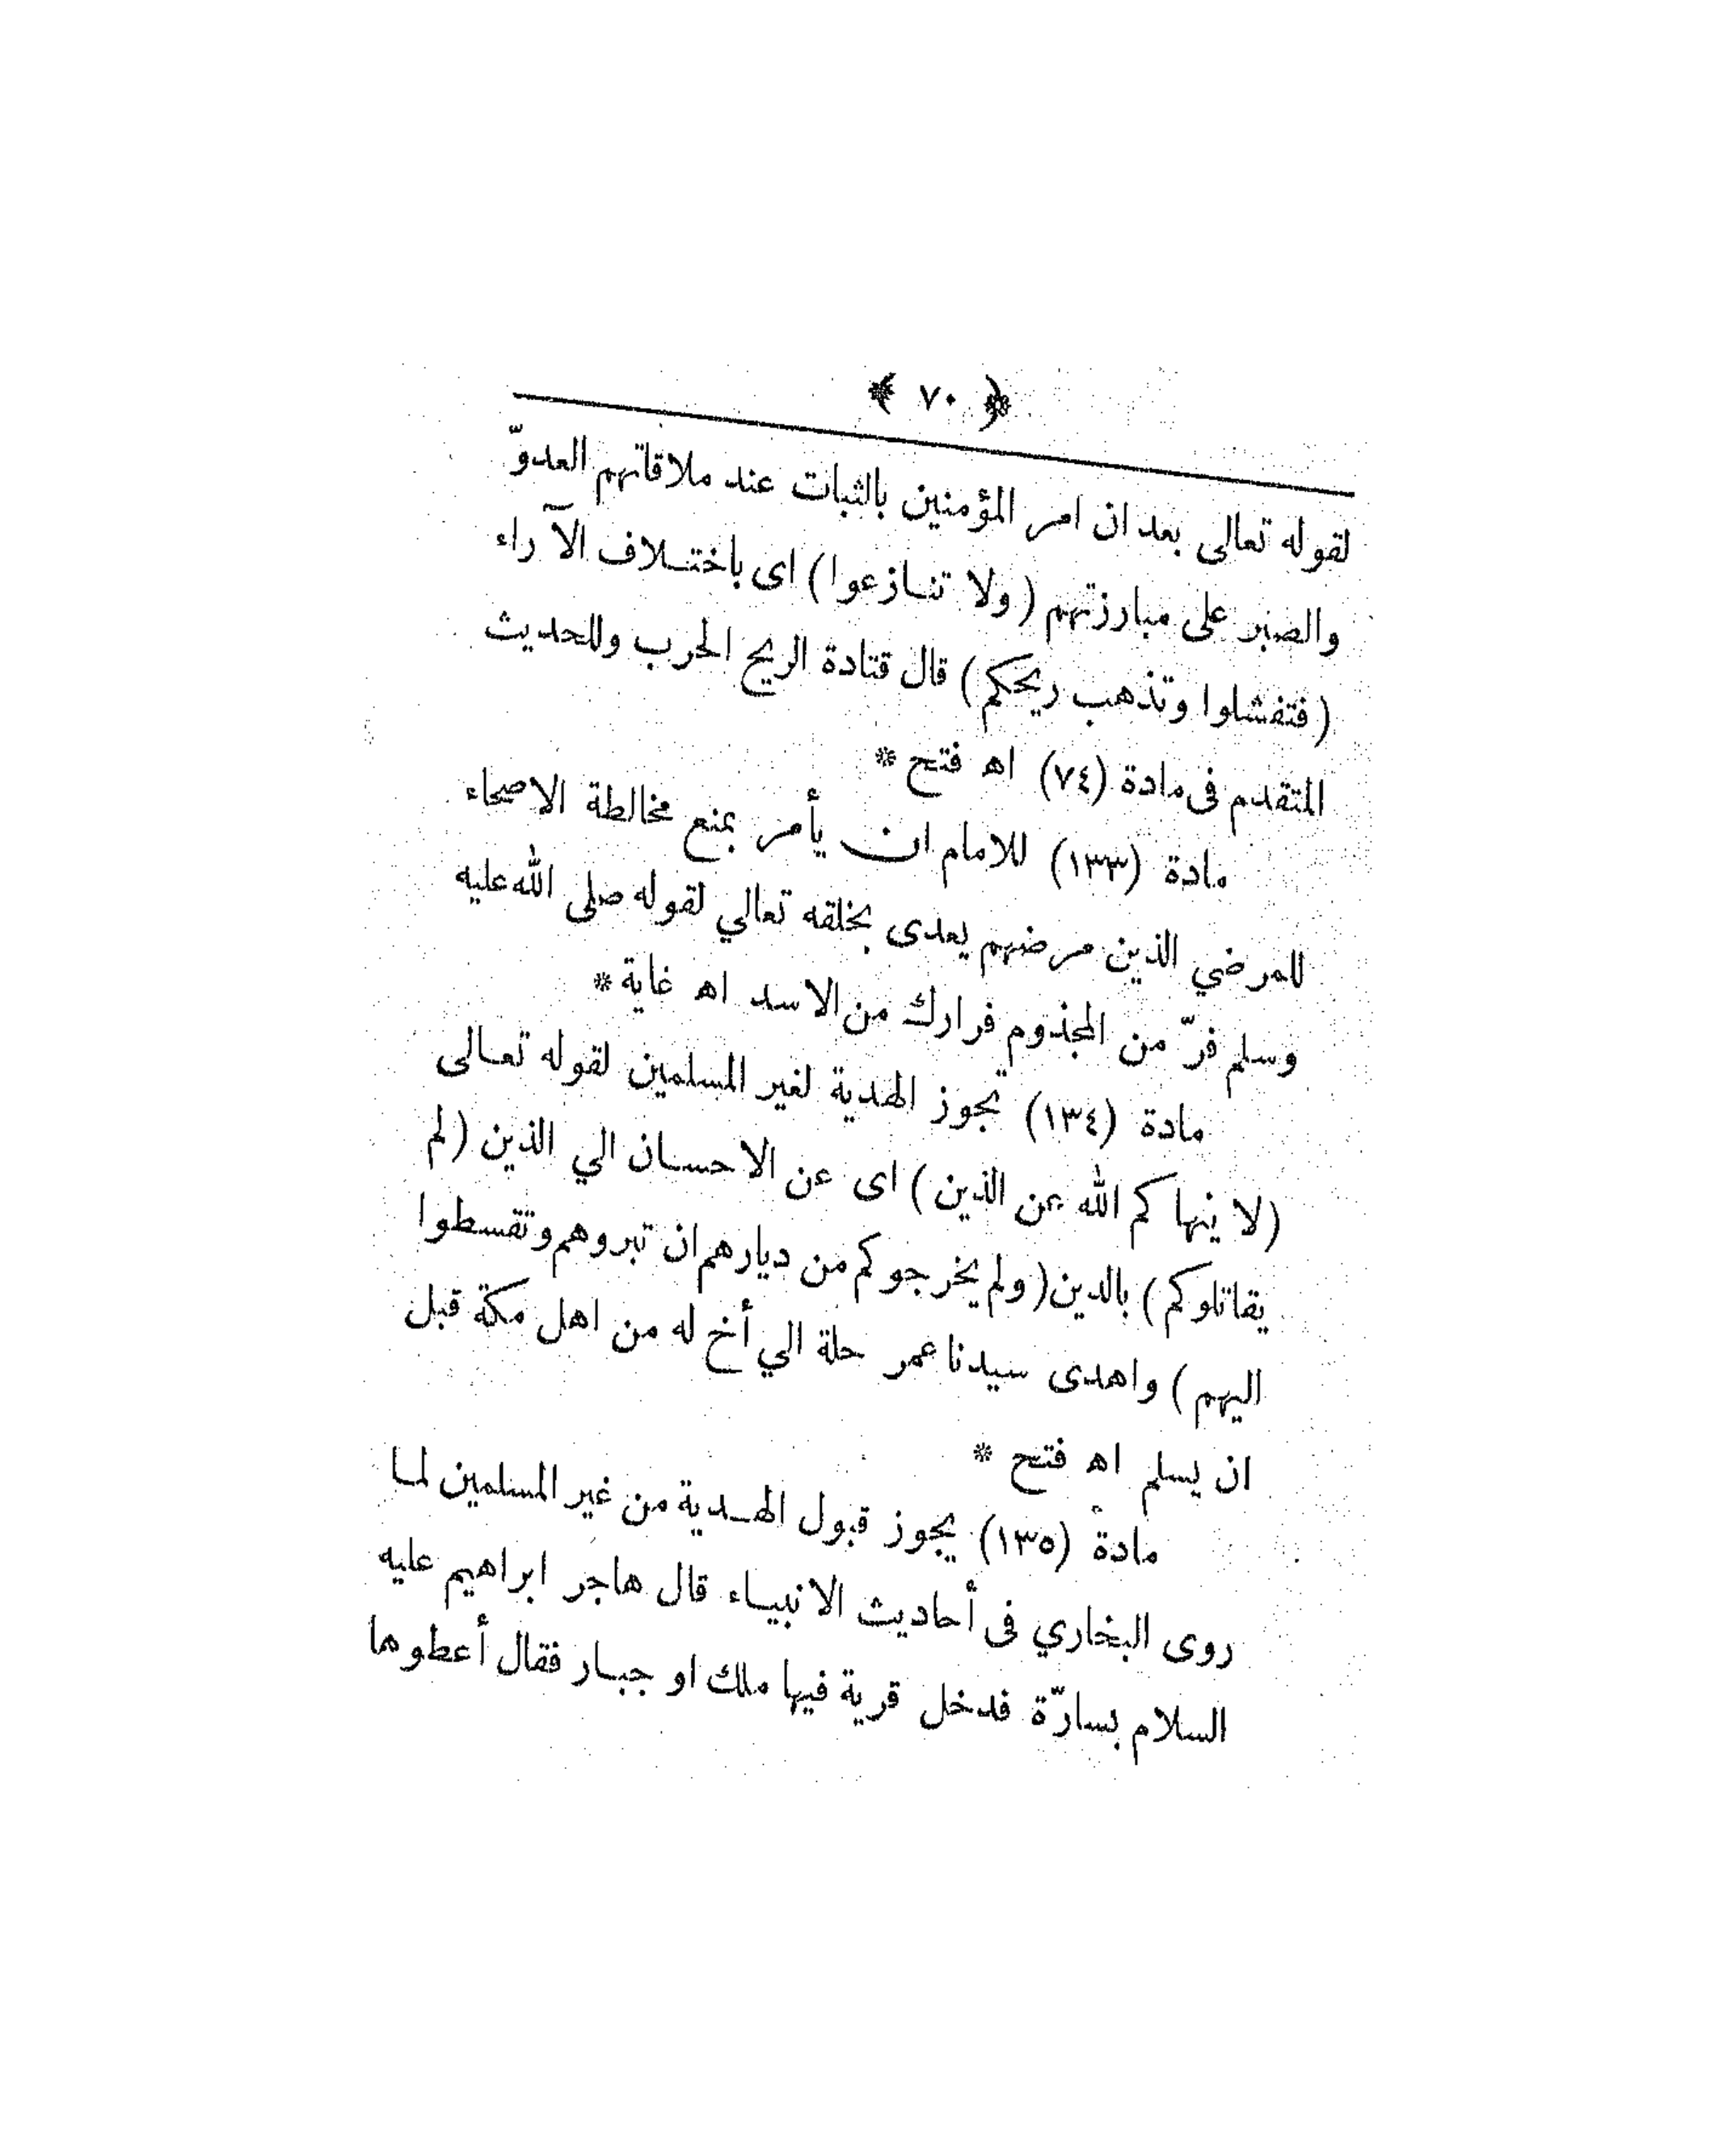 ﴿ ٧٠ ﴾
لقوله تعالى بعد ان امر المؤمنين بالثبات عند ملاقاتهم العدوّ
والصبر على مبارزتهم ( ولا تنازعوا ) اى باختلاف الآراء
( فتفشلوا وتذهب ريحكم ) قال قتادة الريح الحرب وللحديث
المتقدم فى مادة (٧٤) اه فتح *
مادة (١٣٣) للامام ان يأمر بمنع مخالطة الاصحاء
للمرضي الذين مرضهم يعدى بخلقه تعالي لقوله صلى الله عليه
وسلم فرّ من المجذوم فرارك من الاسد اه غاية *
مادة (١٣٤) تجوز الهدية لغير المسلمين لقوله تعالى
(لا ينهاكم الله عن الذين ) اى عن الاحسان الي الذين ( لم
يقاتلوكم ) بالدين ( ولم يخرجوكم من ديارهم ان تبروهم وتقسطوا
اليهم ) واهدى سيدنا عمر حلة الي أخ له من اهل مكة قبل
ان يسلم اه فتح *
مادة (١٣٥) يجوز قبول الهدية من غير المسلمين لما
روى البخاري فى أحاديث الانبياء قال هاجر ابراهيم عليه
السلام بسارّة فدخل قرية فيها ملك او جبار فقال أعطوها